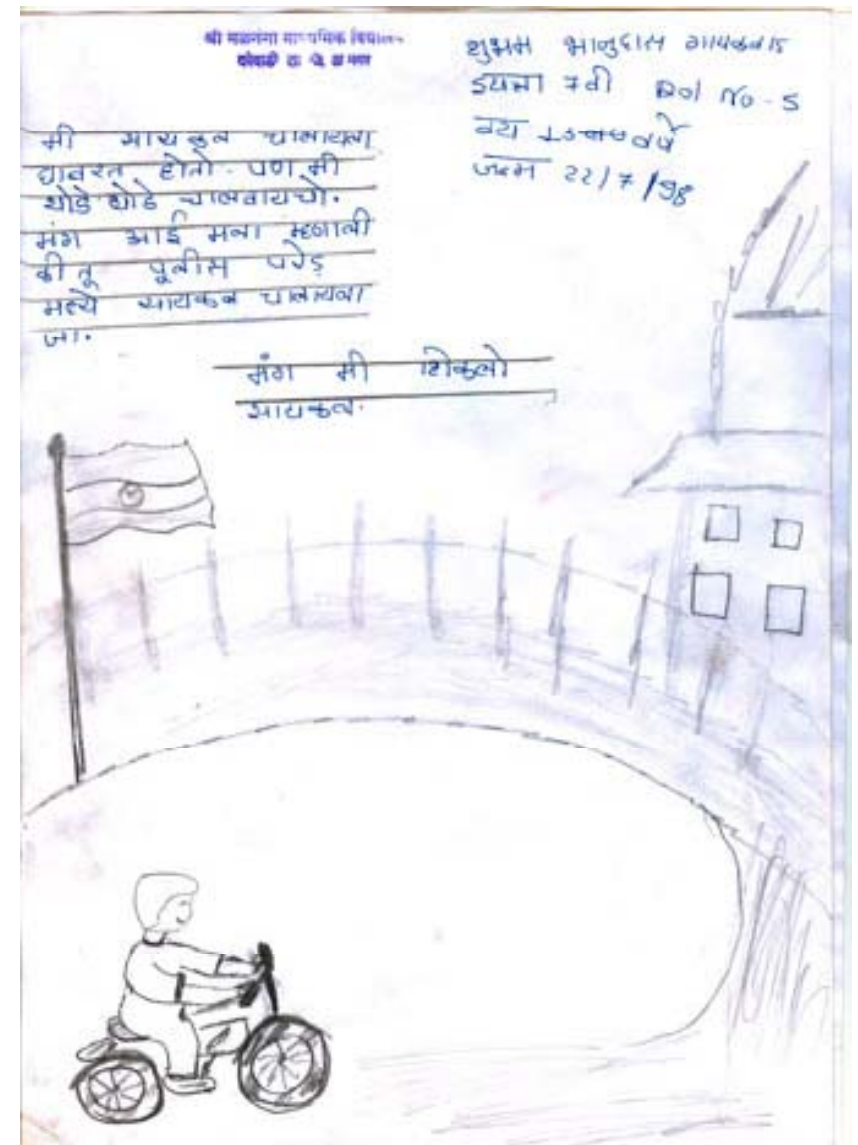 श्री मळगंगा माध्यमिक विद्यालय
शुभम भानुदास गायकवाड
इयत्ता ७वी Rol No - 5
वय वर्षे
जन्म 22/7/98
मी सायकल चालायला
घाबरत होतो. पण मी
थोडे थोडे चालवायचो.
मंग आई मला म्हणाली
की तू पूलीस परेड
मध्ये सायकल चालायला
जा.
मंग मी शिकलो
सायकल.